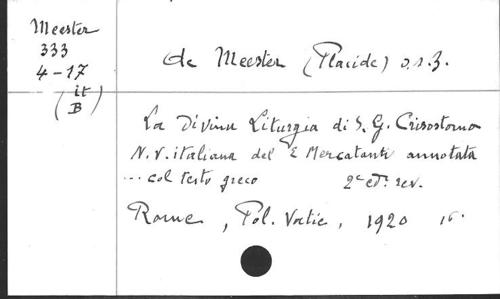 Meester
333
4-17
(it
B)
de Meester (Placide) o.s.B.
La Divina Liturgia di S. G. Crisostomo
N.V. italiana del E Mercatanti annotata
... col testo greco 2e ed. rev.
Rome, Pol. Vatic, 1920 16.